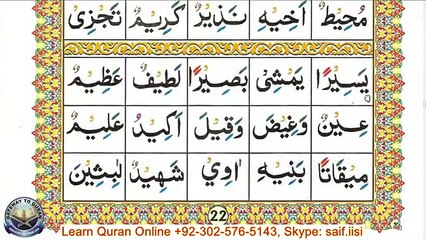 مُحِيْطٌ اَخِيْهِ نَذِيْرٌ كَرِيْمٌ تَجْزِىْ
يَسِيْرًا يَمْشِىْ بَصِيْرًا لَطِيْفٌ عَظِيْمٌ
عِيْنٌ وَغِيْضَ وَقِيْلَ اَكِيْدُ عَلِيْمٌ
مِيْقَاتًا بَنِيْهِ اُوِيْ شَهِيْدٌ لٰبِثِيْنَ
22
GATEWAY TO QURAN
Learn Quran Online +92-302-576-5143, Skype: saif.iisi